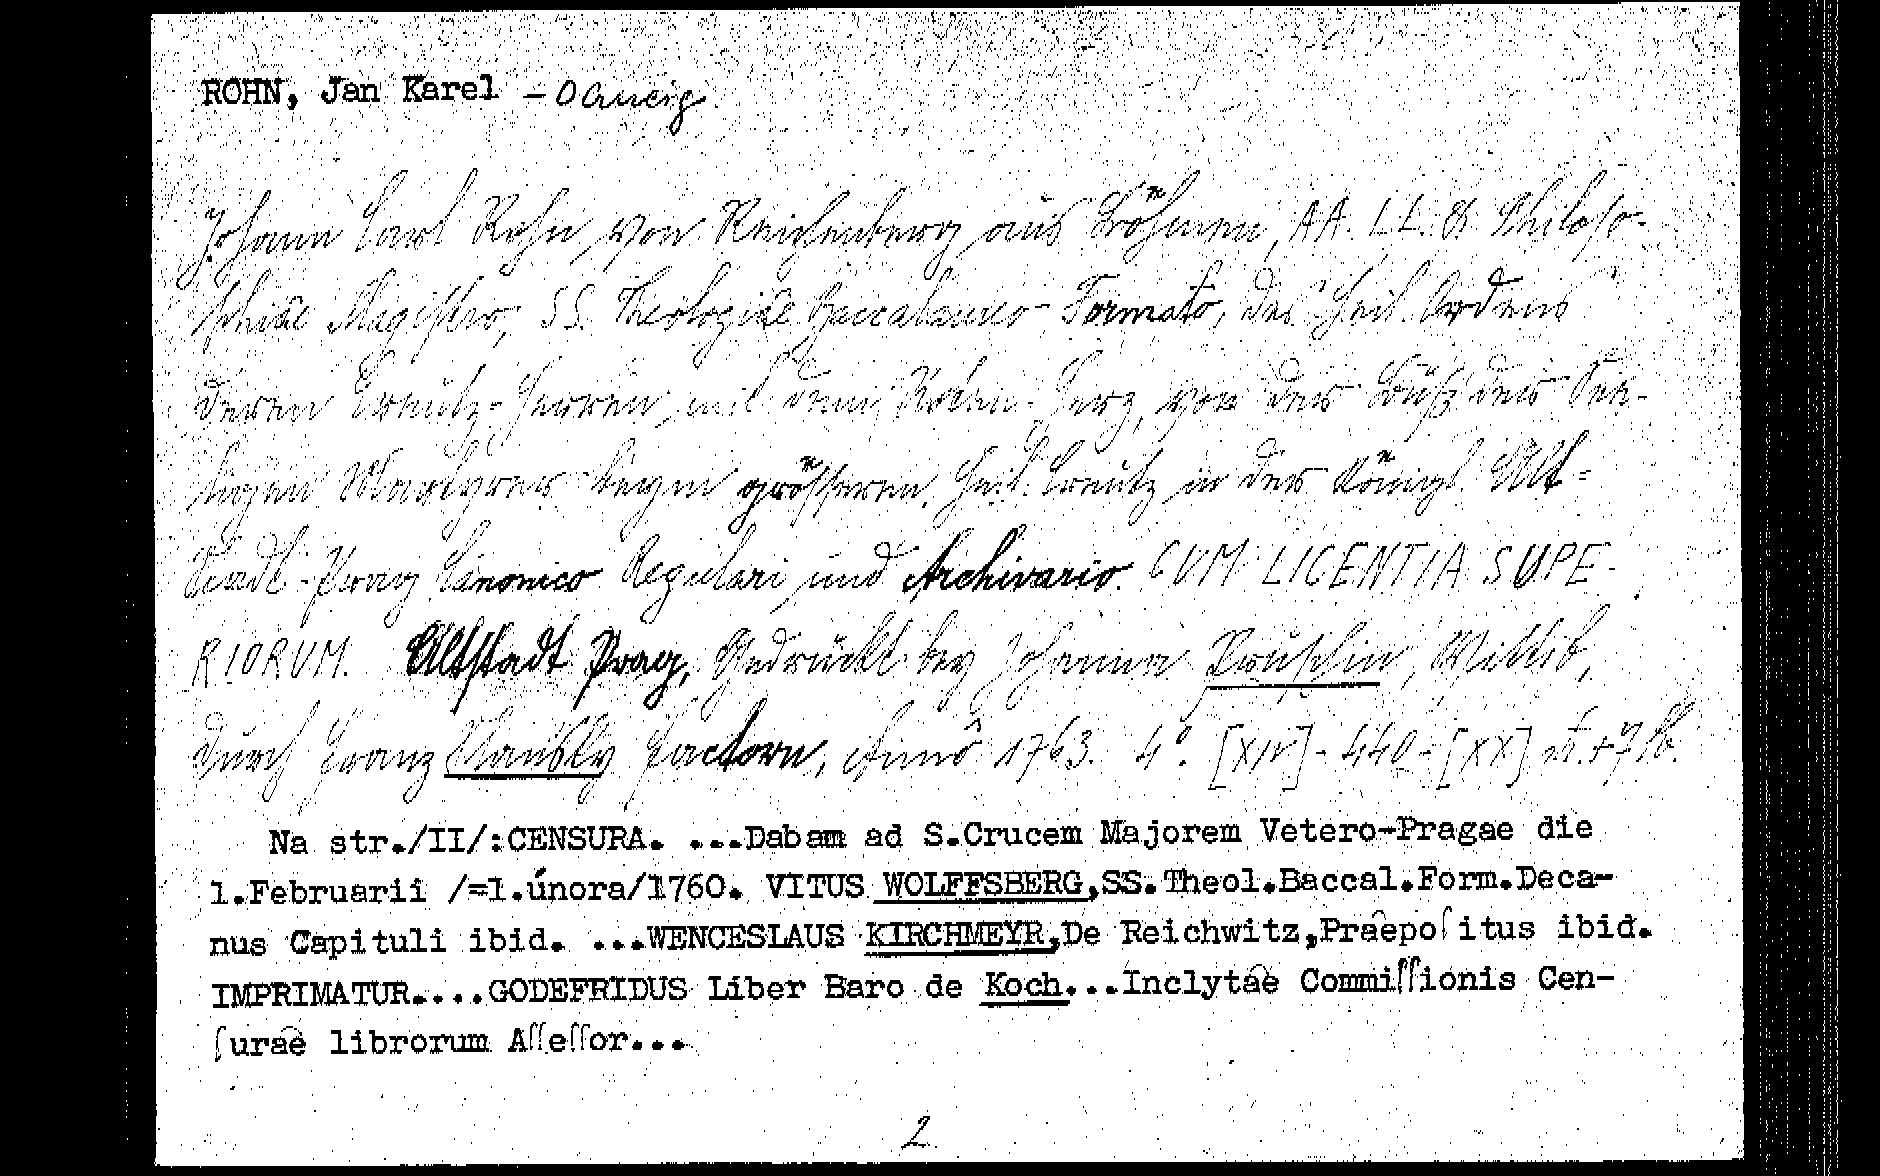 ROHN, Jan Karel –
Johann Carl Rohn, von Reichenberg aus Böhmen, AA. LL. & Philoso-
phiae Magistro, SS. Theologiae Baccalaureo Formato, des Heil. Ordens
deren Creutz-Herren mit dem Rothen Herz, von der Buß der See-
ligen Martyrer beym grösseren Heil. Creutz in der Königl. Alt-
Stadt-Prag Canonico Regulari und Archivario. CUM LICENTIA SUPE-
RIORUM. Altstadt Prag, Gedruckt bey Johanna Prußin, Wittib,
durch Franz Klausky Factorn, Annô 1763. 4°. [XIV]-440-[XX]
Na str./II/:CENSURA. ...Dabam ad S.Crucem Majorem Vetero-Pragae die
1.Februarii /=1.února/1760. VITUS WOLFFSBERG,SS.Theol.Baccal.Form.Deca-
nus Capituli ibid. ...WENCESLAUS KIRCHMEYR,De Reichwitz,Praepoſitus ibid.
IMPRIMATUR....GODEFRIDUS Liber Baro de Koch...Inclytae Commiſſionis Cen-
ſurae librorum Aſſeſſor...
2